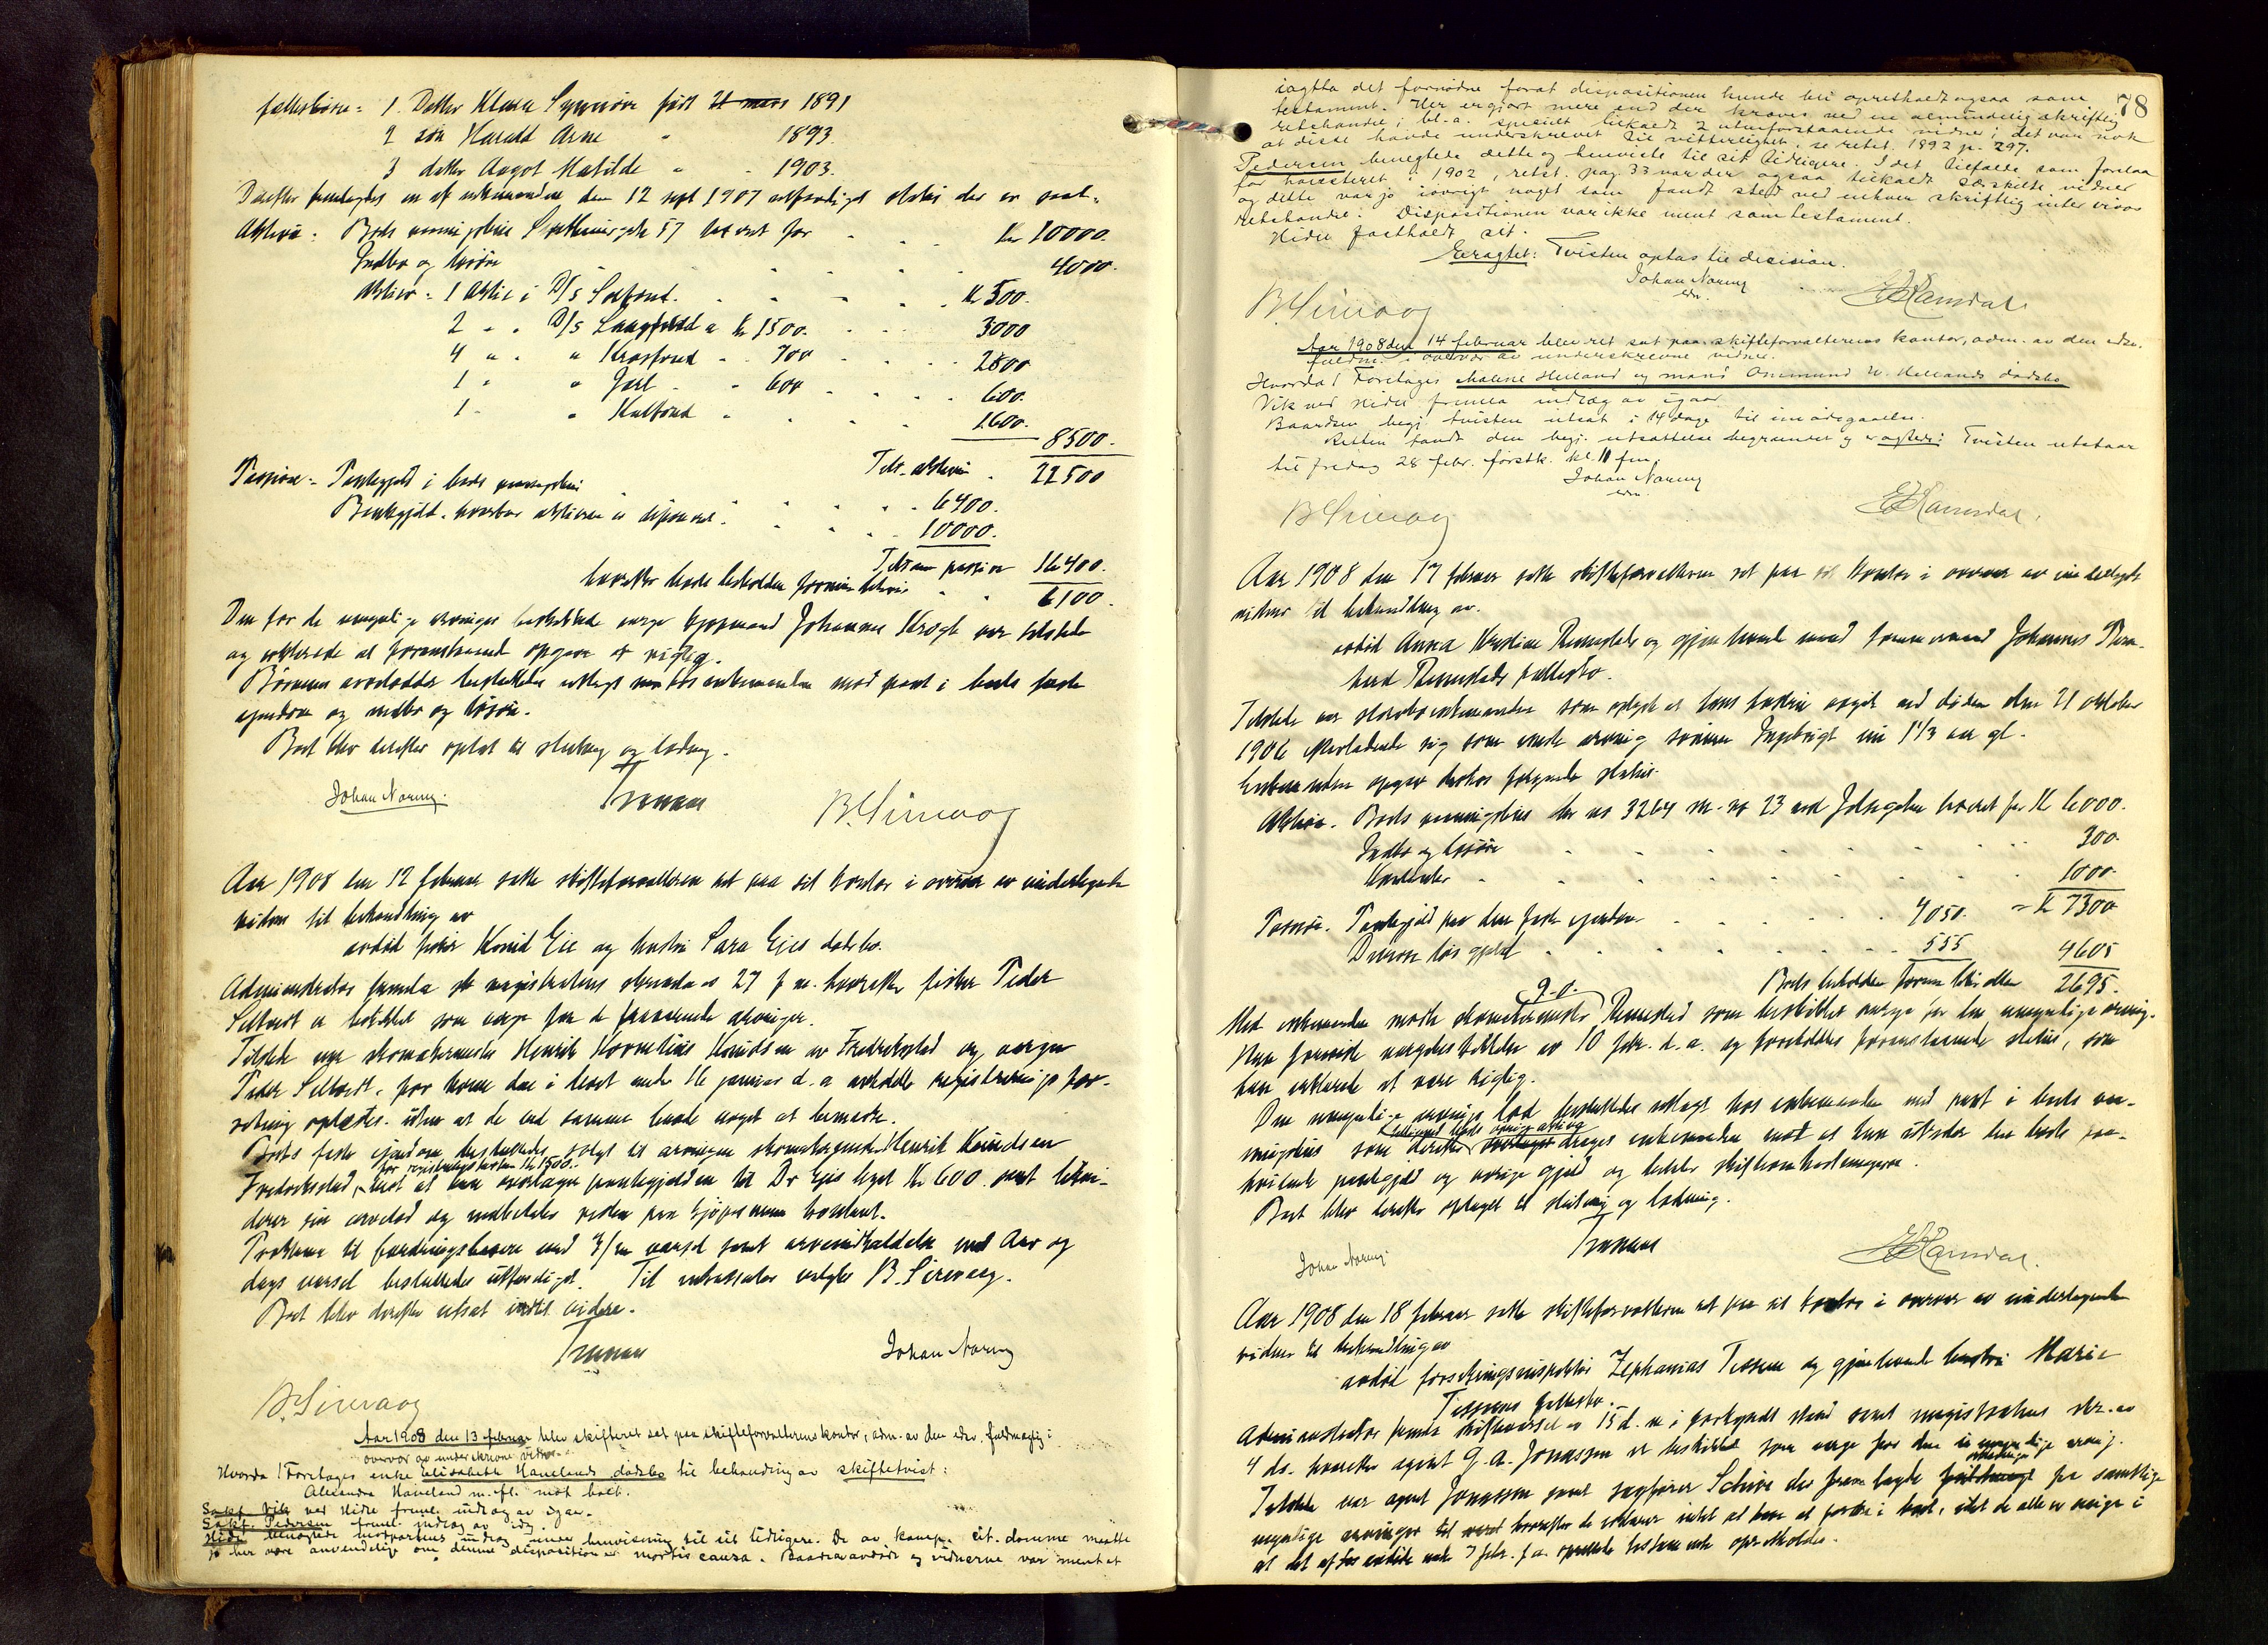 fællesbørn: 1. Datter Klara Synnøve født 21 mars 1891
2 søn Harald Arne " 1893.
3 datter Aagot Matilde " - 1903.
Derefter fremlagdes en af enkemanden den 12 sept 1907 utferdiget status der er saal:
Aktiva: Boets vaaningshus 57 takseret for Kr 10000.
Indbo og løsøre 4000.
Aktier: 1 Aktie i D/s Solfond. Kr 500.
2 " " D/s Laugfond a Kr 1500. 3000
4 " " " Krosfond - 700 2800
1 " " Jarl - " 600 600.
1 - " Kulfond - 1600.
8500.
Tils. aktiva 22500
Passiva: Pantegjæld i boets vaaningshus 6400.
Bankgjæld, hvorfor aktierne er deponeret. 10000.
Tilsammen passiva 16400.
hvorefter boets beholdne formue utgjør 6100.
Den for de umyndige arvinger beskikkede verge kjøpmand Johannes Krogh var tilstede
og erklærede at foranstaaende opgave er rigtig.
Børnenes arvelodder besluttedes utlagt hos enkemanden mod pant i boets faste
eiendom og indbo og løsøre.
Boet blev derefter optat til slutning og lodning.
Johan Norem. B. Sirevaag
Aar 1908 den 12 februar satte skifteforvalteren ret paa sit kontor i overvær av undertegnede
vidner til behandling av
avdød fisker Knud Eie og hustru Sara Eies dødsbo.
Administrator fremla magistratens skrivelse av 27 f. m. hvorefter fisker Peder
Selvast er beskikket som verge for de fraværende arvinger.
Tilstede var skomakermester Henrik Kornelius Knudsen av Fredrikstad og vergen
Peder Selvast, for hvem den i boet under 16 januar d. a avholdte registreringsfor-
retning oplæstes. uten at de ved samme havde noget at bemerke.
Boets faste eiendom besluttedes solgt til arvingen skomakermester Henrik Knudsen
for registreringstaksten Kr 1500.-
Fredrikstad, mot at han overtager pantegjælden til Dr Eies legat Kr 600. samt likvi-
derer sin arvelod og indbetaler resten av kjøpesummen kontant.
Proklama til fordringshavere med varsel samt arveindkaldelse med Aar og
dags varsel besluttedes utferdiget. Til inkassator valgtes B. Sirevaag.
Boet blev derefter utsat indtil videre.
Johan Norem
B. Sirevaag
Aar 1908 den 13 februar blev skifteret sat paa skifteforvalterens kontor, adm. av den edsv. fuldmægtig i
overvær av underskrevne vidner.
Hvorda! Foretages enke Elisabeth Hanelands dødsbo til behandling av skiftetvist:
Alexandra Haneland m. fl. mot boet.
Sakf. Vik ved Hidle freml. indlæg av igaar.
Sakf. Pedersen freml. indlæg av idag.
Hidle benegtede motpartens indlæg under henvisning til sit tidligere. De av kompr. cit. domme maatte
jo her være anvendelige om denne disposition er mortis causa. Baade avdøde og vidnerne var ment at
78
iagtta det fornødne forat dispositionen kunde bli opretholdt ogsaa som
testament. Her er gjort mere end der kræves ved en almindelig skriftlig
retshandel; bl. a. specielt tilkaldt 2 utenforstaaende vidner; det var nok
at disse havde underskrevet til vitterlighet, se retst. 1892 p. 297.
Pedersen benegtede dette og henviste til sit tidligere. I det tilfælde som forelaa
for høiesteret i 1902, retst. pag 33 var der ogsaa tilkaldt særskilte vidner
og dette var jo iøvrigt noget som fandt sted ved enhver skriftlig inter vivos
retshandel. Dispositionen var ikke ment som testament.
Hidle fastholdt sit.
Eragtet: Tvisten optas til decision.
Johan Norem
edsv.
B. Sirevaag E. Ramsdal
Aar 1908 den 14 februar blev ret sat paa skifteforvalterens kontor, adm. av den edsv.
fuldm. i overvær av underskrevne vidner.
Hvorda! Foretages Malene Helland og mand Ommund W. Hellands dødsbo
Vik ved Hidle fremla indlæg av igaar
Baardsen begj. tvisten utsat i 14 dage til imødegaaelse.
Retten fandt den begj. utsættelse begrundet og eragtet: Tvisten utstaar
til fredag 28 febr. førstk. kl. 11 fm.
Johan Norem
edsv.
B Sirevaag E. Ramsdal.
Aar 1908 den 17 februar satte skifteforvalteren ret paa sit kontor i overvær av undertegnede
vidner til behandling av.
avdød Anna Kristine Rennestads og gjenlevende mand Johannes
Rennestads fællesbo.
Tilstede var enkemanden som oplyste at hans hustru avgik ved døden den 21 oktober
1906 efterladende sig som eneste arving sønnen Ingebrigt nu 1 1/3 aar gl.
Enkemanden opgav derhos følgende status.
Aktiva. Boets vaaningshus br no 3264 m. no 23 ved Jelsagaten takseret for Kr 6000.
Indbo og løsøre 300.
1000.
= Kr 7300
Passiva. Pantegjæld paa den faste eiendom 4050.
Diverse løs gjæld 555 4605
Boets beholdne formue blir altsaa 2695.
g. o.
Med enkemanden møtte skomakermester Rennestad som beskikket verge for den umyndige arving.
Han foreviste vergebeskikkelse av 10 febr. d. a. og foreholdtes foranstaaende status, som
han erklærede at være rigtig.
Den umyndige arvings lod besluttedes utlagt hos enkemanden mod pant i boets vaa-
tillikemed boets øvrige aktiva
ningshus som derefter overtages enkemanden mot at han utreder den boet paa-
hvilende pantegjæld og øvrige gjæld og betaler skifteomkostningerne.
Boet blev derefter optaget til slutning og lodning.
Johan Norem. E. Ramsdal.
Aar 1908 den 18 februar satte skifteforvalteren ret paa sit kontor i overvær av undertegnede
vidner til behandling av
avdød forsikringsinspektør Zephanias Tessem og gjenlevende hustru Marie
Tessems fællesbo.
Administrator fremla skiftevarsel av 15 d. m. i forkyndt stand samt magistratens skr. av
4 ds. hvorefter agent G. A. Jonassen er beskikket som verge for den umyndige arving.
Tilstede var agent Jonassen samt sagfører Schive der fremlagde fra samtlige
myndige arvinger hvorefter de erklærer intet at have at fordre i boet, idet de alle er enige i
at det af avdøde under 7 febr. f. a. oprettede testamente opretholdes.